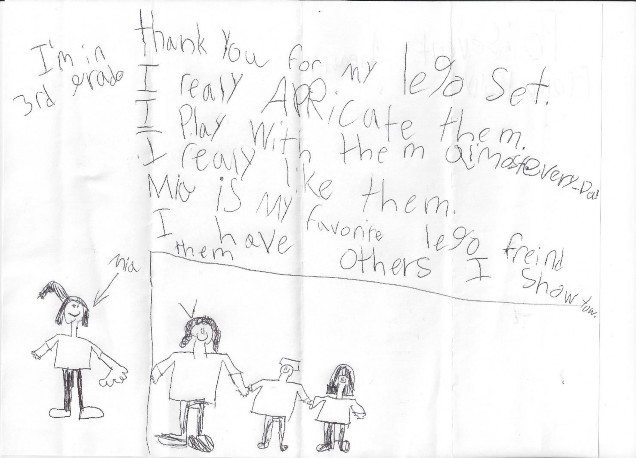 I'm in
3rd grade
thank you for my lego set.
I realy APRicate them.
I Play with them almost every-Day
I realy like them.
Mia is my favorite lego freind
I have others I show you.
them
Mia